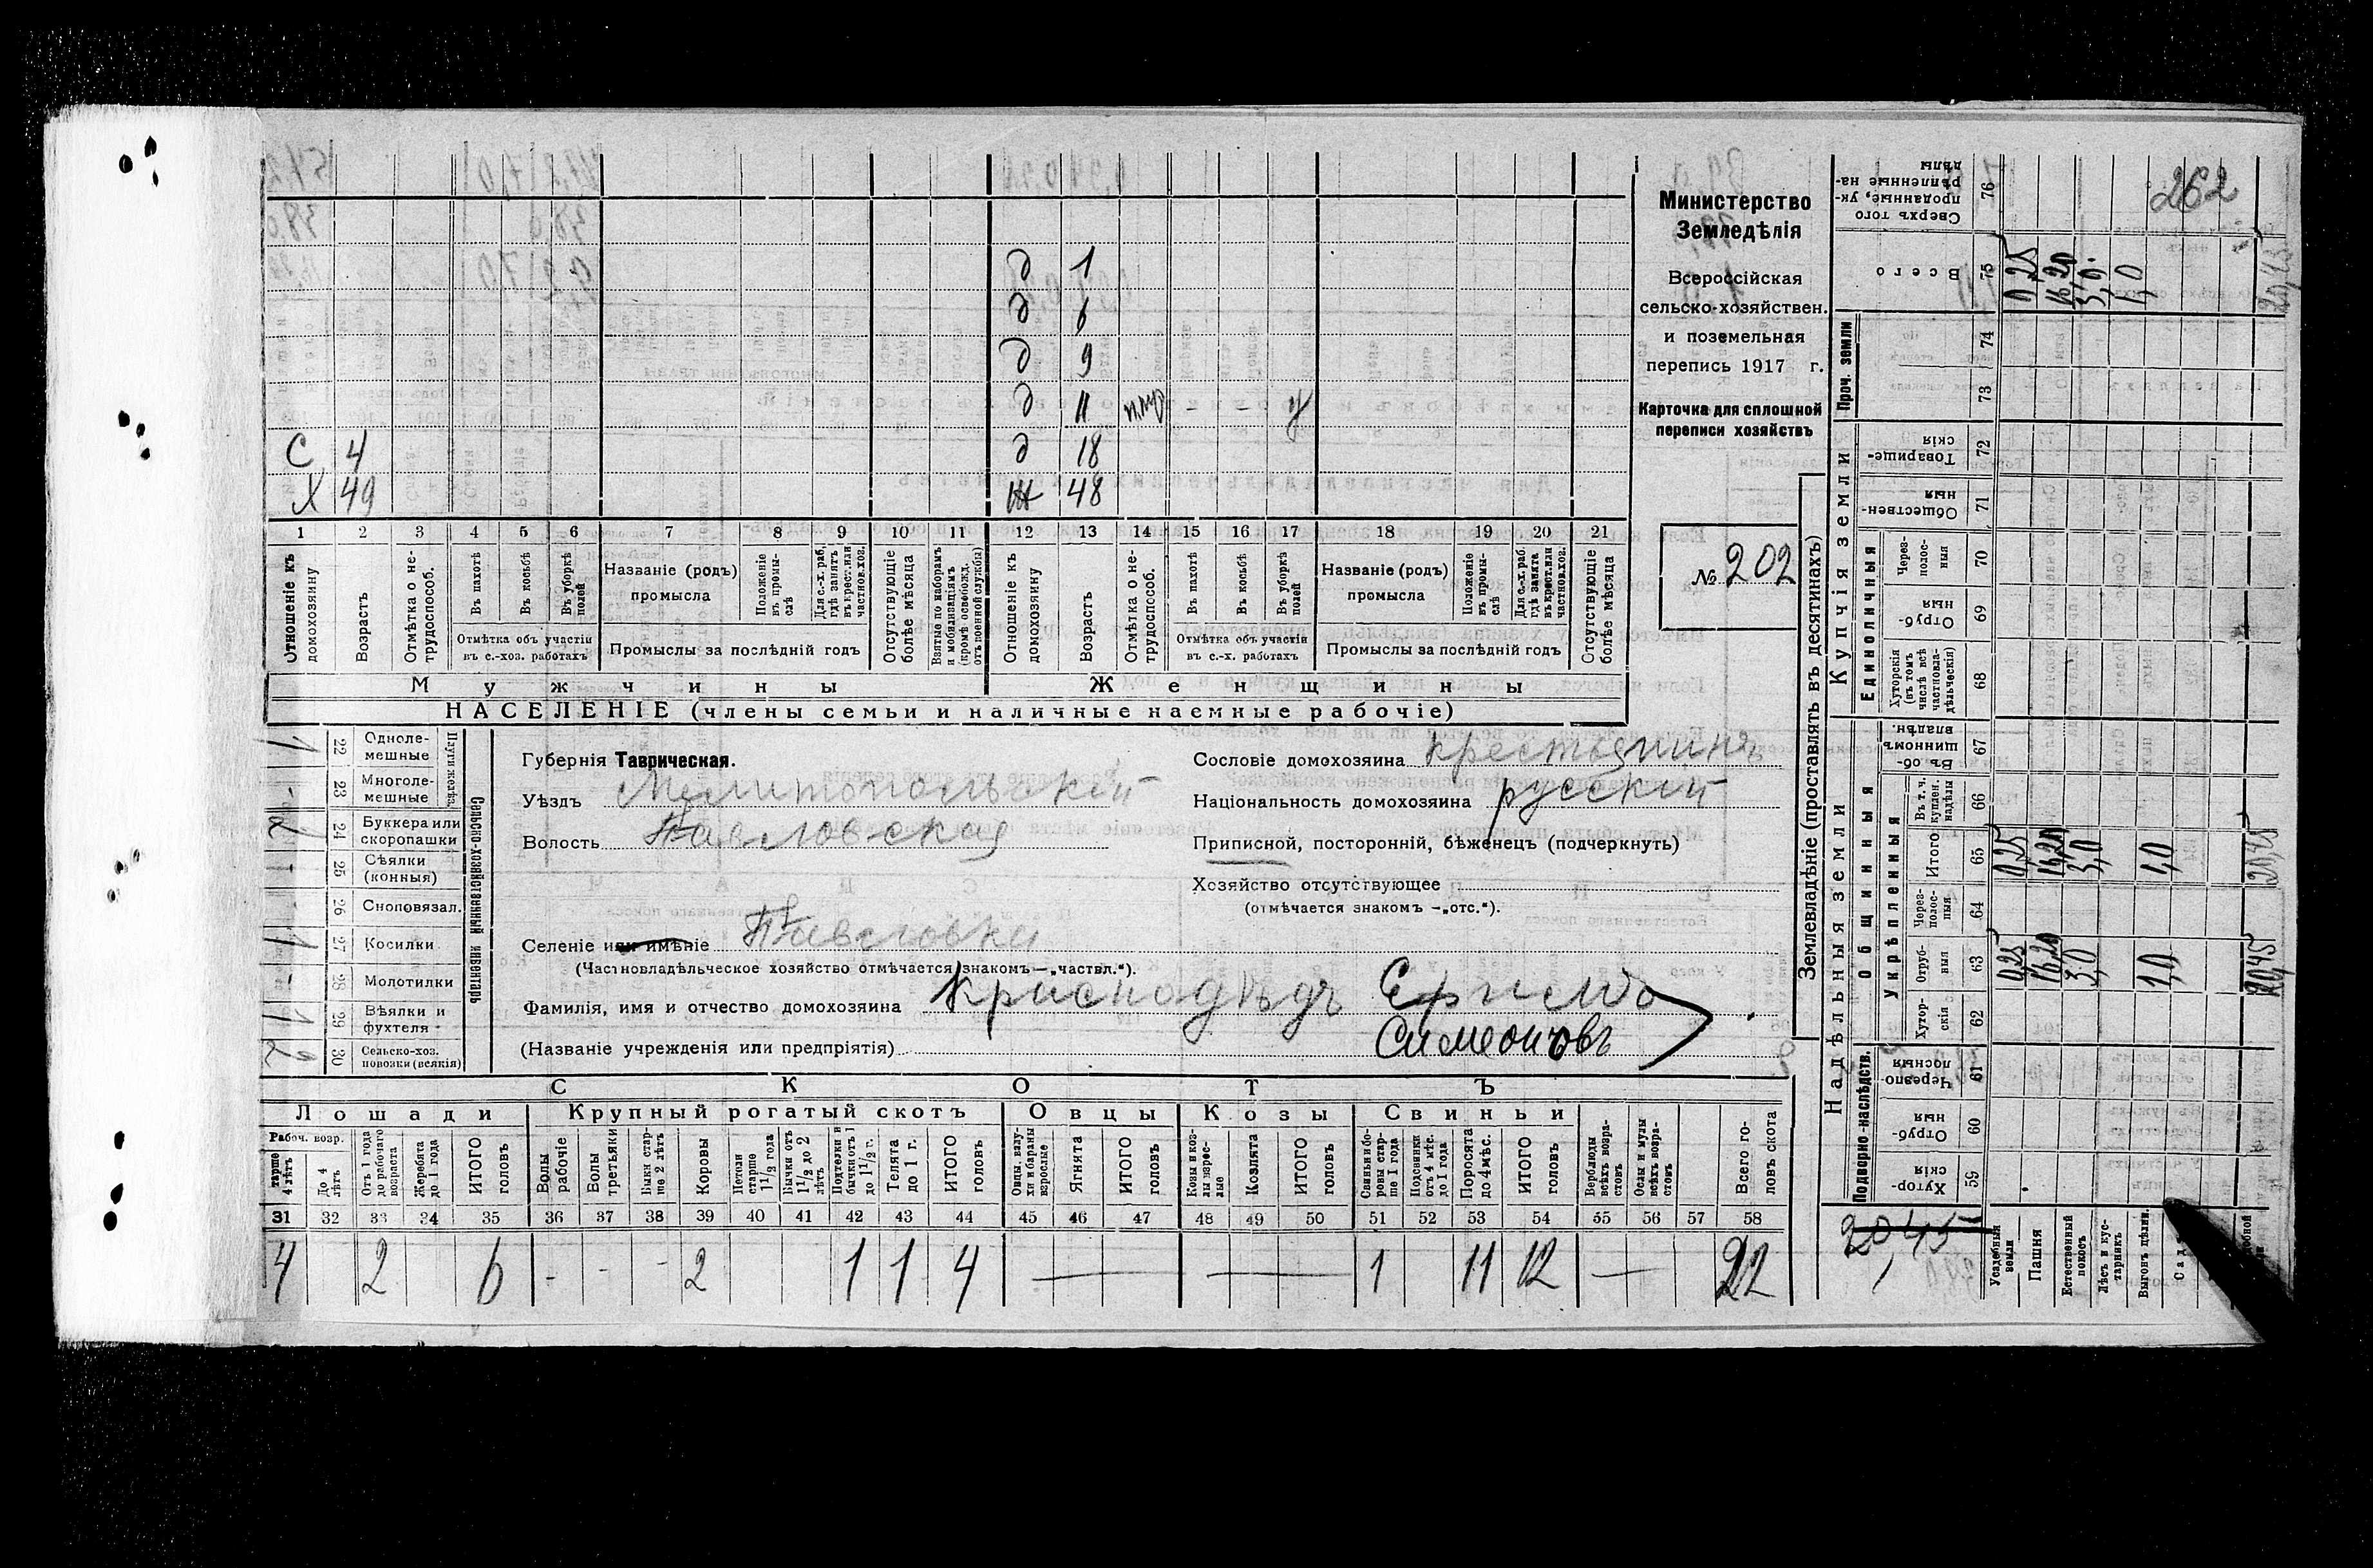 262
Министерство
Земледѣлія
Всероссійская
сельско-хозяйствен.
и поземельная
перепись 1917 г.
Карточка для сплошной
переписи хозяйствъ
№ 202
д 1
д 6
д 9
д 11 - - у
С 4 д 18
Х 49 Ж 48
1 2 3 4 5 6 7 8 9 10 11 12 13 14 15 16 17 18 19 20 21
Отношеніе къ домохозяину
Возрастъ
Отмѣтка о не-трудоспособ.
Въ пахотѣ
Въ косьбѣ
Въ уборкѣ полей
Отмѣтка объ участіи
въ с.-хоз. работахъ
Названіе (родъ)
промысла
Положеніе въ промы-слѣ
Для с.-х. раб. гдѣ занятъ въ крест. или частнов. хоз.
Промыслы за послѣдній годъ
Отсутствующіе болѣе мѣсяца
Взятые по наборамъ и мобилизаціямъ (кромѣ освобожд. отъ военной службы)
Отношеніе къ домохозяину
Возрастъ
Отмѣтка о не-трудоспособ.
Въ пахотѣ
Въ косьбѣ
Въ уборкѣ полей
Отмѣтка объ участіи
въ с.-х. работахъ
Названіе (родъ)
промысла
Положеніе въ промы-слѣ
Для с.-х. раб. гдѣ занята въ крест. или частнов. хоз.
Промыслы за послѣдній годъ
Отсутствующіе болѣе мѣсяца
Мужчины Женщины
НАСЕЛЕНІЕ (члены семьи и наличные наемные рабочіе)
Сельско-хозяйственный инвентарь
Плуги желѣз.
22 Одноле-мешные 1
23 Многоле-мешные -
24 Буккера или скоропашки 2
25 Сѣялки (конныя) -
26 Сноповязал. -
27 Косилки 1
28 Молотилки -
29 Вѣялки и фухтеля 1
30 Сельско-хоз. повозки (всякія) 2
Губернія Таврическая.
Уѣздъ Мелитопольскій
Волость Павловская
Селеніе или имѣніе Павловка
(Частновладѣльческое хозяйство отмѣчается знакомъ—„частвл.“).
Фамилія, имя и отчество домохозяина Краснодѣдъ Ефимъ
(Названіе учрежденія или предпріятія) Симеоновъ
Сословіе домохозяина крестьянинъ
Національность домохозяина русскій
Приписной, посторонній, бѣженецъ (подчеркнуть)
Хозяйство отсутствующее
(отмѣчается знакомъ—„отс.“).
СКОТЪ
Лошади Крупный рогатый скотъ Овцы Козы Свиньи
Рабоч. возр.
старше 4 лѣтъ
До 4 лѣтъ
Отъ 1 года до рабочаго возраста
Жеребята до 1 года
ИТОГО головъ
Волы рабочіе
Волы третьяки
Быки стар-ше 2 лѣтъ
Коровы
Нетели старше 1½ года
Бычки отъ 1½ до 2 лѣтъ
Подтелки и бычки отъ 1 до 1½ г.
Телята до 1 г.
ИТОГО головъ
Овцы, валу-хи и бараны взрослые
Ягнята
ИТОГО головъ
Козы и коз-лы взрос-лые
Козлята
ИТОГО головъ
Свиньи и бо-ровы стар-ше 1 года
Подсвинки отъ 4 мѣс. до 1 года
Поросята до 4 мѣс.
ИТОГО головъ
Верблюды всѣхъ возра-стовъ
Ослы и мулы всѣхъ возра-стовъ
Всего го-ловъ скота
31 32 33 34 35 36 37 38 39 40 41 42 43 44 45 46 47 48 49 50 51 52 53 54 55 56 57 58
4 2 6 - - - 2 1 1 4 — — 1 11 12 — 22
Землевладѣніе (проставлять въ десятинахъ)
Надѣльныя земли Купчія земли Проч. земли
Подворно-наслѣдств.
Общинныя
Укрѣпленныя
Единоличныя
Хутор-скія 59
Отруб-ныя 60
Черезпо-лосныя 61
Хутор-скія 62
Отруб-ныя 63
Через-полос-ныя 64
Итого 65
Въ т. ч. куплен. надѣлы 66
Въ об-щинномъ владѣн. 67
Хуторскія (въ томъ числѣ всѣ частновла-дѣльческія) 68
Отруб-ныя 69
Через-полос-ныя 70
Обществен-ныя 71
Товарище-скія 72
73
74
Всего 75
Сверхъ того проданные, ук-рѣпленные на-дѣлы 76
Усадебныя земли 0,25 0,25 0,25
Пашня 16,20 16,20 16,20
Естественный покосъ 3,0 3,0 3,0
Лѣсъ и кус-тарникъ
Выгонъ цѣлин. 1,0 1,0 1,0
20,45 20,45 20,45
20,45